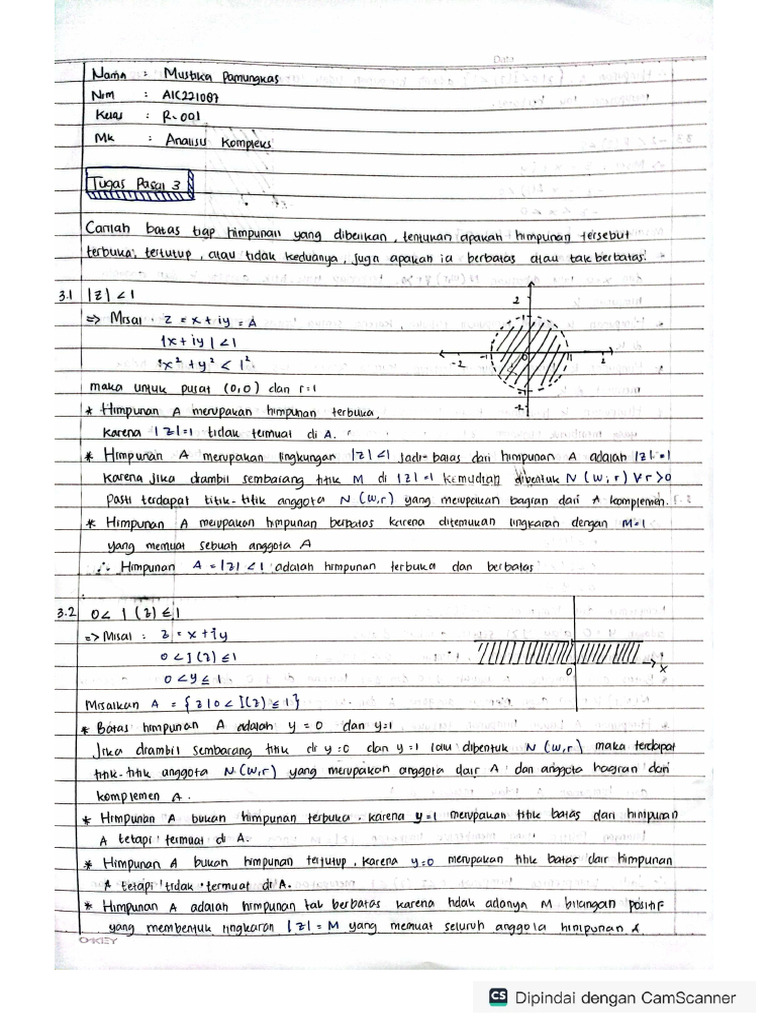 Date
Nama : Mustika Pamungkas
Nim : A1C221087
Kelas : R-001
Mk : Analisis Kompleks
Tugas Pasal 3
Carilah batas tiap himpunan yang diberikan, tentukan apakah himpunan tersebut
terbuka, tertutup, atau tidak keduanya, juga apakah ia berbatas atau tak berbatas.
3.1 |z| < 1
=> Misal : z = x + iy = A
|x + iy| < 1
x² + y² < 1²
maka untuk pusat (0,0) dan r=1
* Himpunan A merupakan himpunan terbuka,
karena |z|=1 tidak termuat di A.
* Himpunan A merupakan lingkungan |z|<1 jadi batas dari himpunan A adalah |z|=1
karena jika diambil sembarang titik M di |z|=1 kemudian dibentuk N(w,r) ∀r>0
pasti terdapat titik-titik anggota N(w,r) yang merupakan bagian dari A komplemen.
* Himpunan A merupakan himpunan berbatas karena ditemukan lingkaran dengan M=1
yang memuat sebuah anggota A
∴ Himpunan A = |z| < 1 adalah himpunan terbuka dan berbatas
2 -2 -1 0 1 2 -1 -2
3.2 0 < I (z) ≤ 1
=> Misal : z = x + iy
0 < I (z) ≤ 1
0 < y ≤ 1
0 x
Misalkan A = {z | 0 < I(z) ≤ 1}
* Batas himpunan A adalah y = 0 dan y=1
Jika diambil sembarang titik di y=0 dan y=1 lalu dibentuk N(w,r) maka terdapat
titik-titik anggota N(w,r) yang merupakan anggota dair A dan anggota bagian dari
komplemen A.
* Himpunan A bukan himpunan terbuka. karena y=1 merupakan titik batas dari himpunan
A tetapi termuat di A.
* Himpunan A bukan himpunan tertutup, karena y=0 merupakan titik batas dair himpunan
A tetapi tidak termuat di A.
* Himpunan A adalah himpunan tak berbatas karena tidak adanya M bilangan positif
yang membentuk lingkaran |z| = M yang memuat seluruh anggota himpunan A
OKEY
CS Dipindai dengan CamScanner